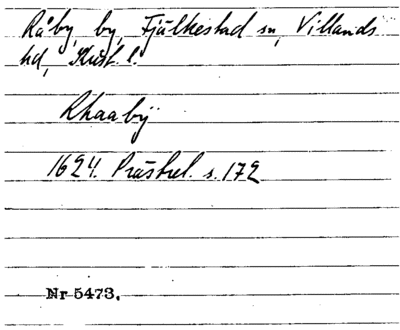 Råby by, Fjälkestad sn, Villands
hd, Krist. l.
Rhaabÿ
1624. Prästrel. s. 172
Nr 5473.